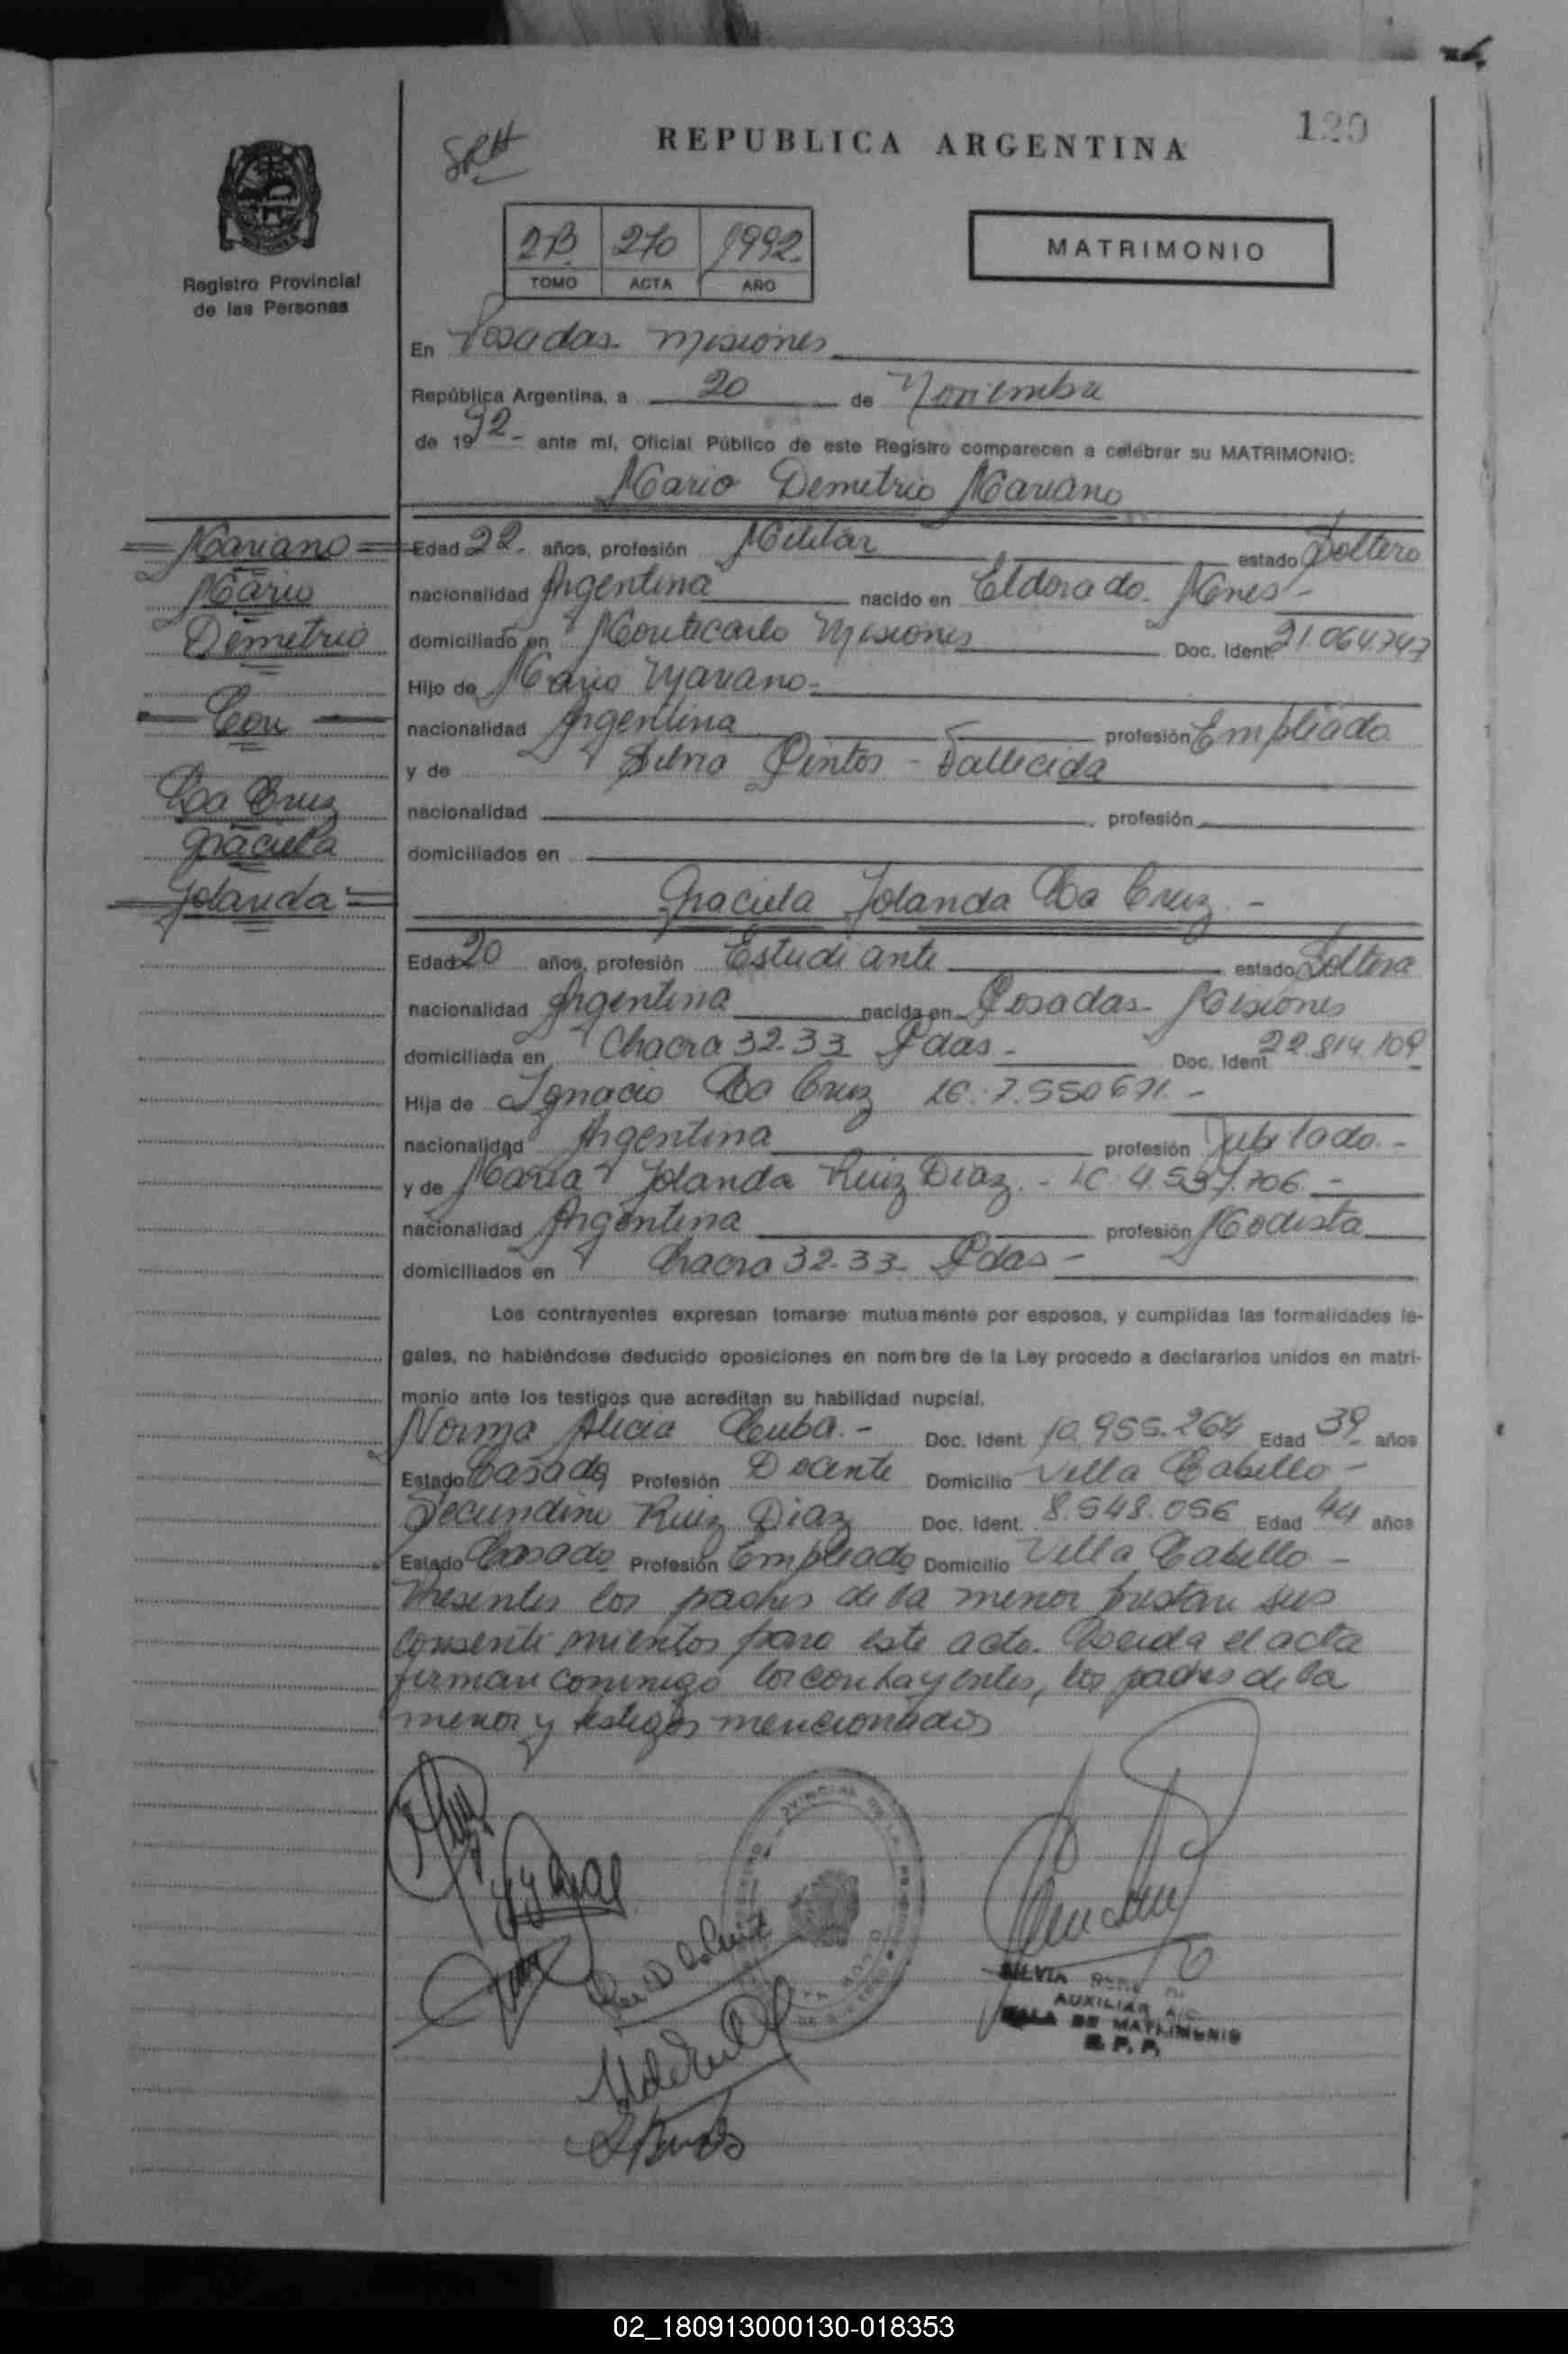 120
REPUBLICA ARGENTINA
2B 270 1992
TOMO ACTA AÑO
MATRIMONIO
Registro Provincial
de las Personas
En Posadas - Misiones
República Argentina, a 20 de Noviembre
de 1992 - ante mí, Oficial Público de este Registro comparecen a celebrar su MATRIMONIO:
Mario Demetrio Mariano
Mariano
Mario
Demetrio
Con
Da Cruz
Graciela
Yolanda
Edad 22 - años, profesión Militar estado Soltero
nacionalidad Argentina nacido en Eldorado - Mnes -
domiciliado en Montecarlo Misiones Doc. Ident. 21.064.747
Hijo de Mario Mariano -
nacionalidad Argentina profesión Empleado
y de Silvia Pintos - Fallecida
nacionalidad profesión
domiciliados en
Graciela Yolanda Da Cruz -
Edad 20 años, profesión Estudiante estado Soltera
nacionalidad Argentina nacida en Posadas - Misiones
domiciliada en Chacra 32-33 Pdas - Doc. Ident. 22.814.109
Hija de Ignacio Da Cruz 7.550671 -
nacionalidad Argentina profesión Jubilado -
y de Maria Yolanda Ruiz Diaz - LC 4.537.706 -
nacionalidad Argentina profesión Modista
domiciliados en Chacra 32-33 - Pdas -
Los contrayentes expresan tomarse mutuamente por esposos, y cumplidas las formalidades le-
gales, no habiéndose deducido oposiciones en nombre de la Ley procedo a declararlos unidos en matri-
monio ante los testigos que acreditan su habilidad nupcial.
Norma Alicia Cuba - Doc. Ident. 10.955.264 Edad 39 años
Estado Casada Profesión Docente Domicilio Villa Cabello -
Secundino Ruiz Diaz Doc. Ident. 8.548.056 Edad 44 años
Estado Casado Profesión Empleado Domicilio Villa Cabello -
Presentes los padres de la menor prestan sus
consentimientos para este acto. Leida el acta
firman conmigo los contrayentes, los padres de la
menor y testigos mencionados
SILVIA
AUXILIAR
SALA DE MATRIMONIO
R. P. P.
02_180913000130-018353